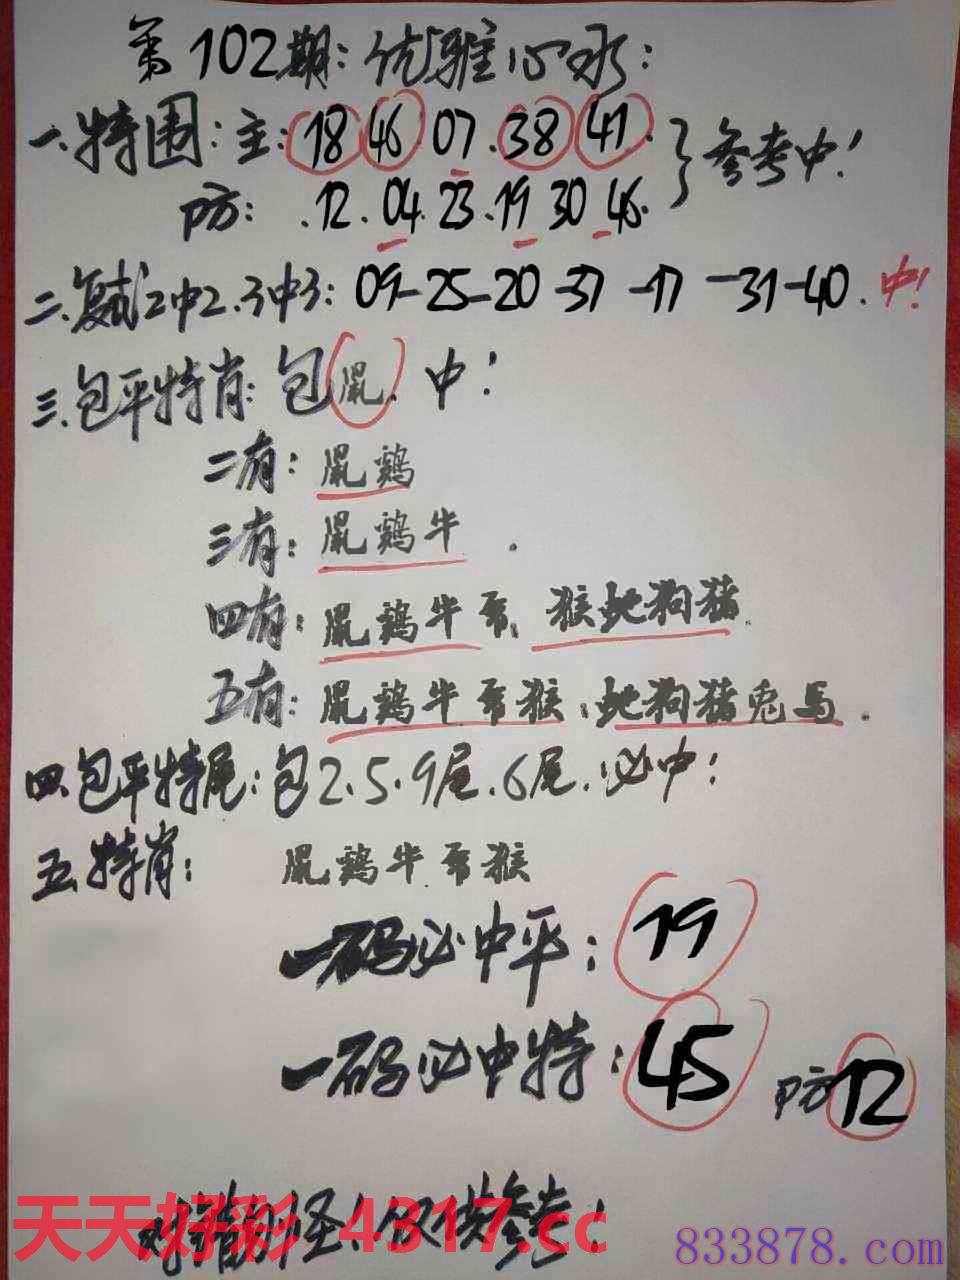 第102期:优雅心水:
一.特围:主:18 46.07.38 41.}参考中!
防:.12.04.23.19 30 46.
二.复试2中2.3中3:09-25-20-37-17-31-40.中!
三.包平特肖:包鼠.中!
二有:鼠鸡
三有:鼠鸡牛.
四有:鼠鸡牛 猴蛇狗猪.
五有:鼠鸡牛 猴:蛇狗猪兔马.
四.包平特尾:包2.5.9尾.6尾.必中:
五.特肖:鼠鸡牛. 猴
一码必中平:19
一码必中特:45 防12
对错勿怪!仅供参考!
天天好彩 4317.cc
833878.com